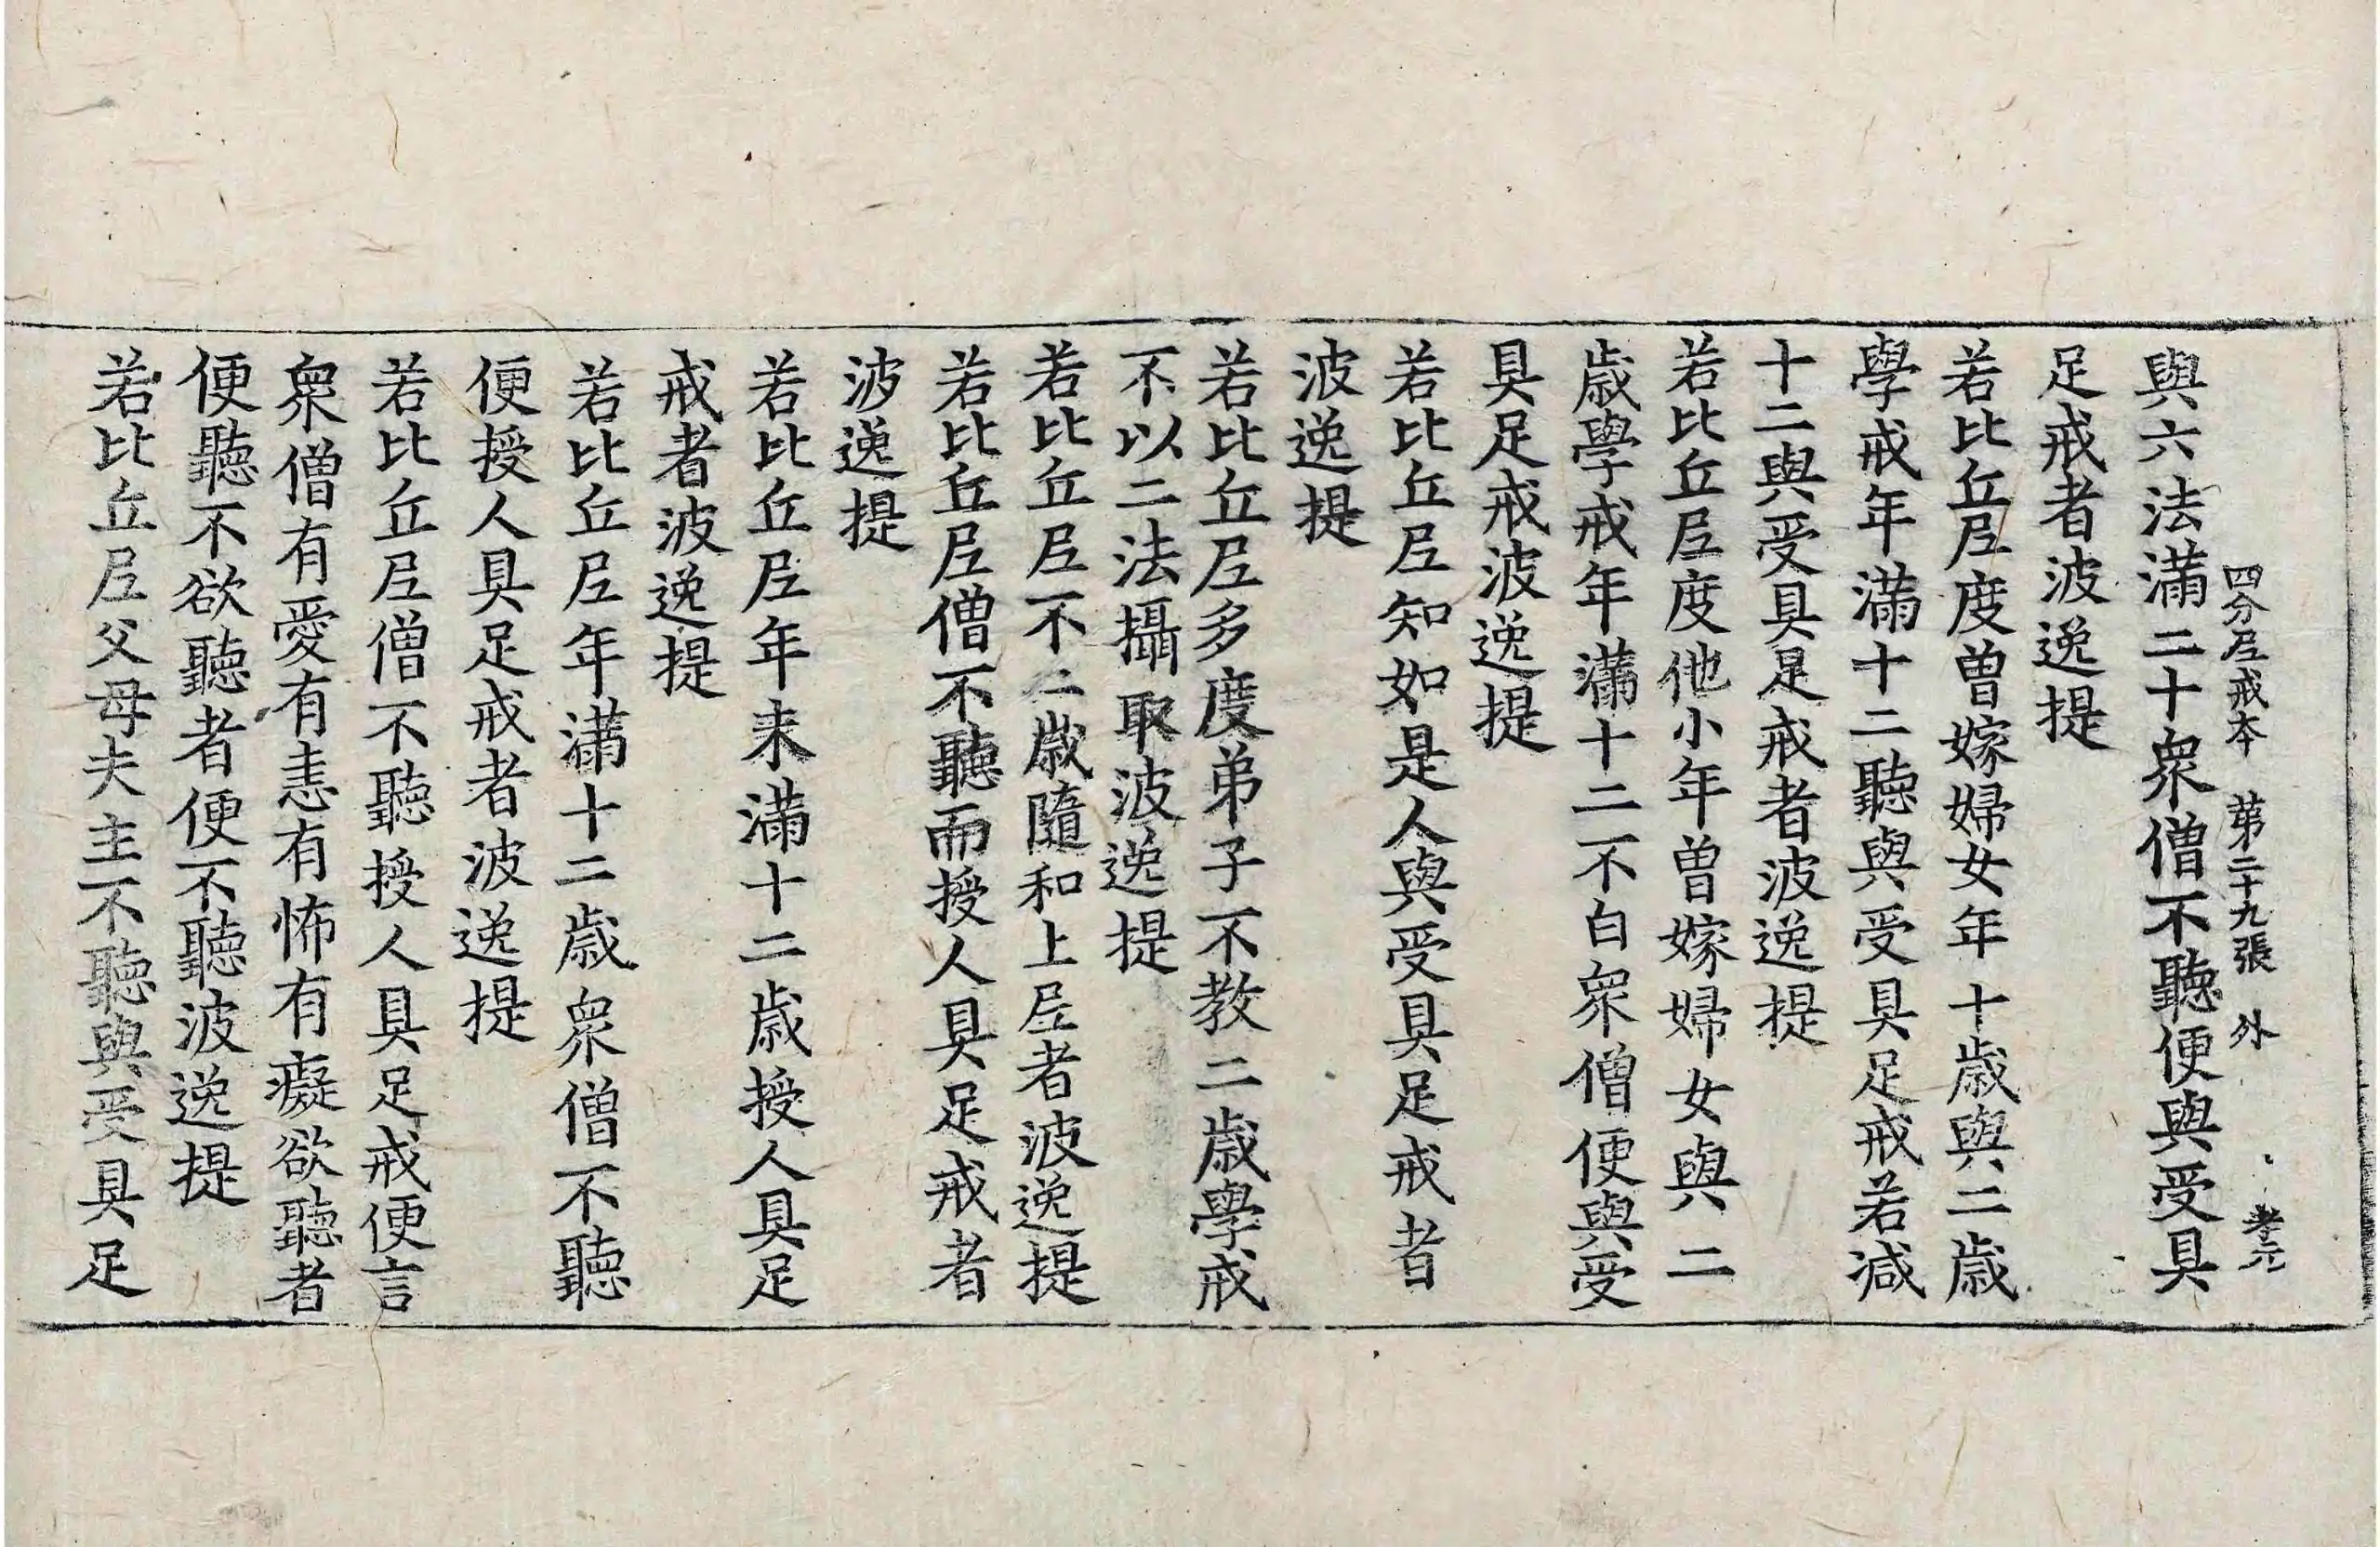 四分尼戒本 第二十九張 外
與六法滿二十衆僧不聽便與受具
足戒者波逸提
若比丘尼度曾嫁婦女年十歲與二歲
學戒年滿十二聽與受具足戒若減
十二與受具足戒者波逸提
若比丘尼度他小年曾嫁婦女與二
歲學戒年滿十二不白衆僧便與受
具足戒波逸提
若比丘尼知如是人與受具足戒者
波逸提
若比丘尼多度弟子不教二歲學戒
不以二法攝取波逸提
若比丘尼不二歲隨和上尼者波逸提
若比丘尼僧不聽而授人具足戒者
波逸提
若比丘尼年未滿十二歲授人具足
戒者波逸提
若比丘尼年滿十二歲衆僧不聽
便授人具足戒者波逸提
若比丘尼僧不聽授人具足戒便言
衆僧有愛有恚有怖有癡欲聽者
便聽不欲聽者便不聽波逸提
若比丘尼父母夫主不聽與受具足